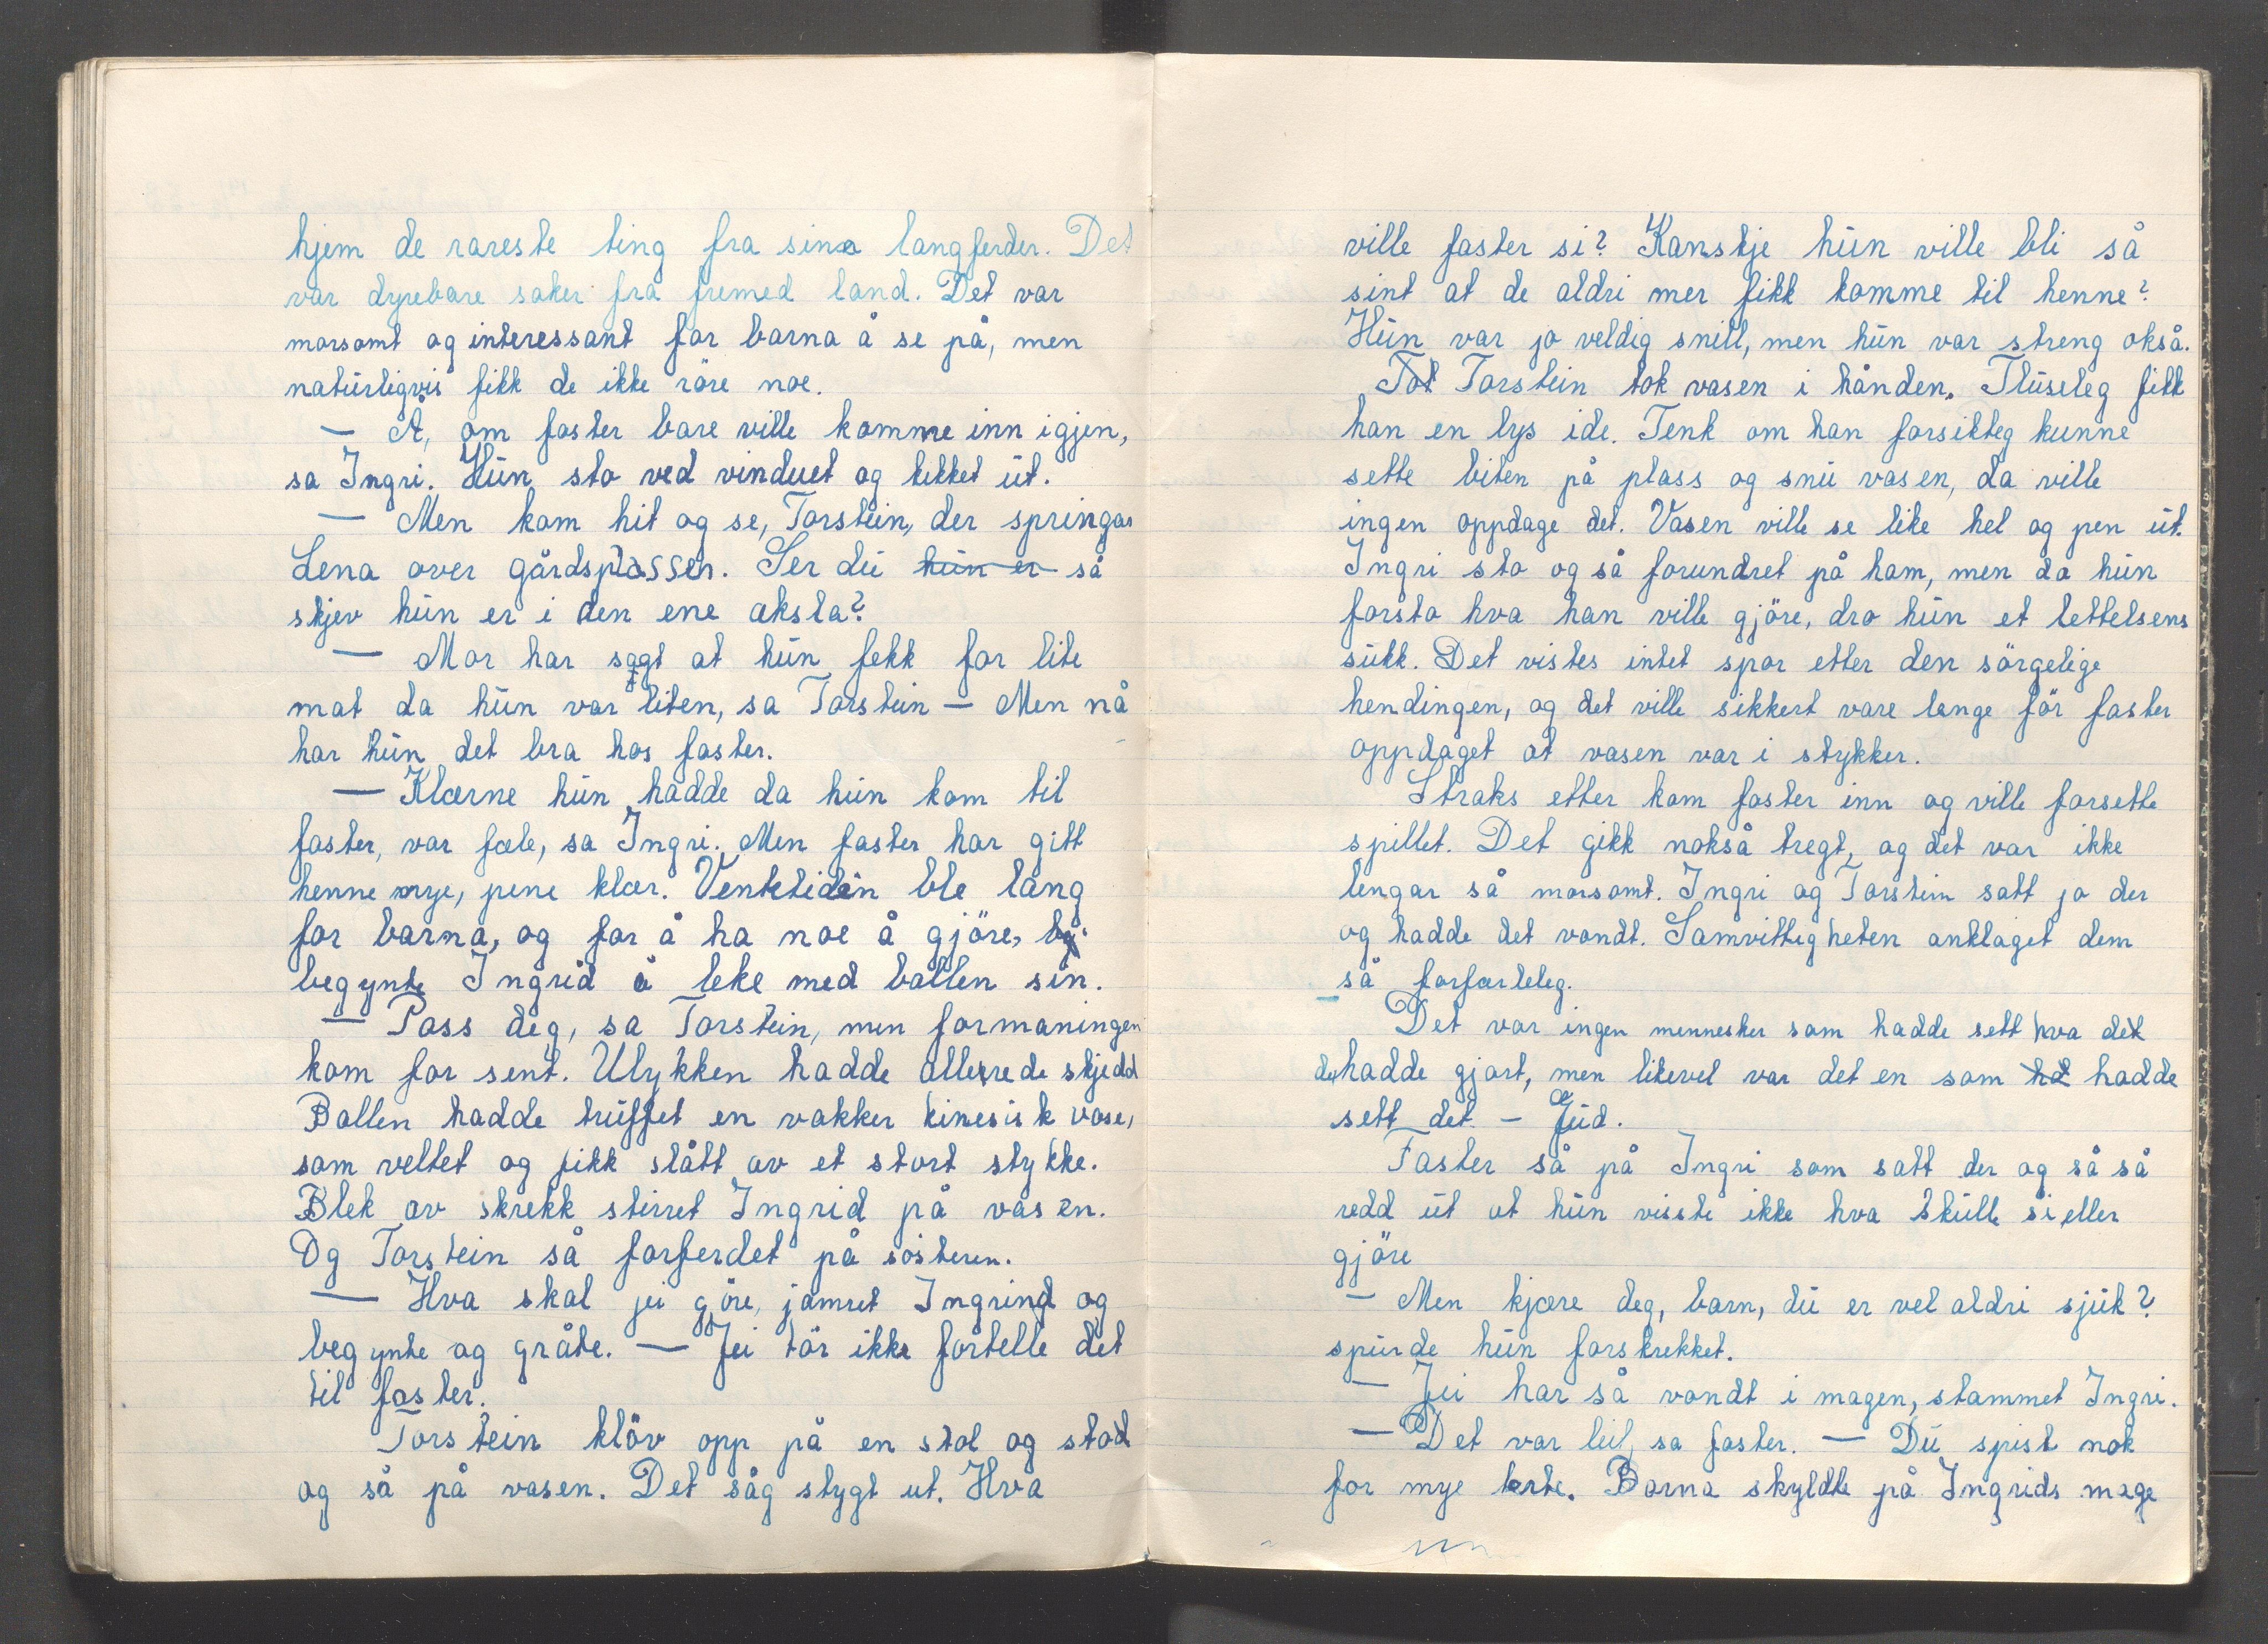 hjem de rareste ting fra sina langferder. Det
var dyrebare saker fra fremed land. Det var
morsomt og interessant for barna å se på, men
natürligvis fikk de ikke röre noe.
— Å, om faster bare ville komme inn igjen,
sa Ingri. Hün sto ved vinduet og kikket üt.
— Men kom hit og se, Torstein, der springar
Lena over gårdsplassen. Ser dü hün er så
skjev hün er i den ene aksla?
— Mor har sagt at hün fekk for lite
mat da hün var liten, sa Torstein — Men nå
har hün det bra hos faster.
— Klærne hün hadde da hün kom til
faster, var fæle, sa Ingri. Men faster har gitt
henne mye, pene klær. Ventetiden ble lang
for barna, og for å ha noe å gjöre, by
begynte Ingrid å leke med ballen sin.
— Pass deg, sa Torstein, men formaningen
kom for sent. Ulykken hadde allerede skjedd
Ballen hadde trüffet en vakker kinesisk vase,
som veltet og fikk slått av et stort stykke.
Blek av skrekk stirret Ingrid på vasen.
Og Torstein så forferdet på sösteren.
— Hva skal jei göre, jamret Ingrind og
begynte og gråte. — Jei tör ikke fortelle det
til faster.
Torstein klöv opp på en stol og stod
og så på vasen. Det såg stygt ut. Hva
ville faster si? Kanskje hün ville bli så
sint at de aldri mer fikk komme til henne?
Hün var jo veldig snill, men hün var streng okså.
Tot Torstein tok vasen i hånden. Plüseleg fikk
han en lys ide. Tenk om han forsikteg kunne
sette biten på plass og snü vasen, da ville
ingen oppdage det. Vasen ville se like hel og pen üt.
Ingri sto og så forundret på ham, men da hün
forsto hva han ville gjöre, dro hün et lettelsens
sükk. Det vistes intet spor etter den sörgelige
hendingen, og det ville sikkert vare lenge för faster
oppdaget at vasen var i stykker.
Straks etter kom faster inn og ville forsette
spillet. Det gikk nokså tregt, og det var ikke
lengar så morsomt. Ingri og Torstein satt jo der
og hadde det vondt. Samvittigheten anklaget dem
så forfærleleg.
Det var ingen mennesker som hadde sett hva det
de hadde gjort, men likevel var det en som hadde
sett det — Güd.
Faster så på Ingri som satt der og så så
redd üt at hün visste ikke hva skülle si, eller
gjöre
— Men kjære deg, barn, dü er vel aldri sjük?
spürde hün forskrekket.
— Jei har så vondt i magen, stammet Ingri.
— Det var leit, sa faster. — Dü spist nok
for mye terte. Barna skyldte på Ingrids mage